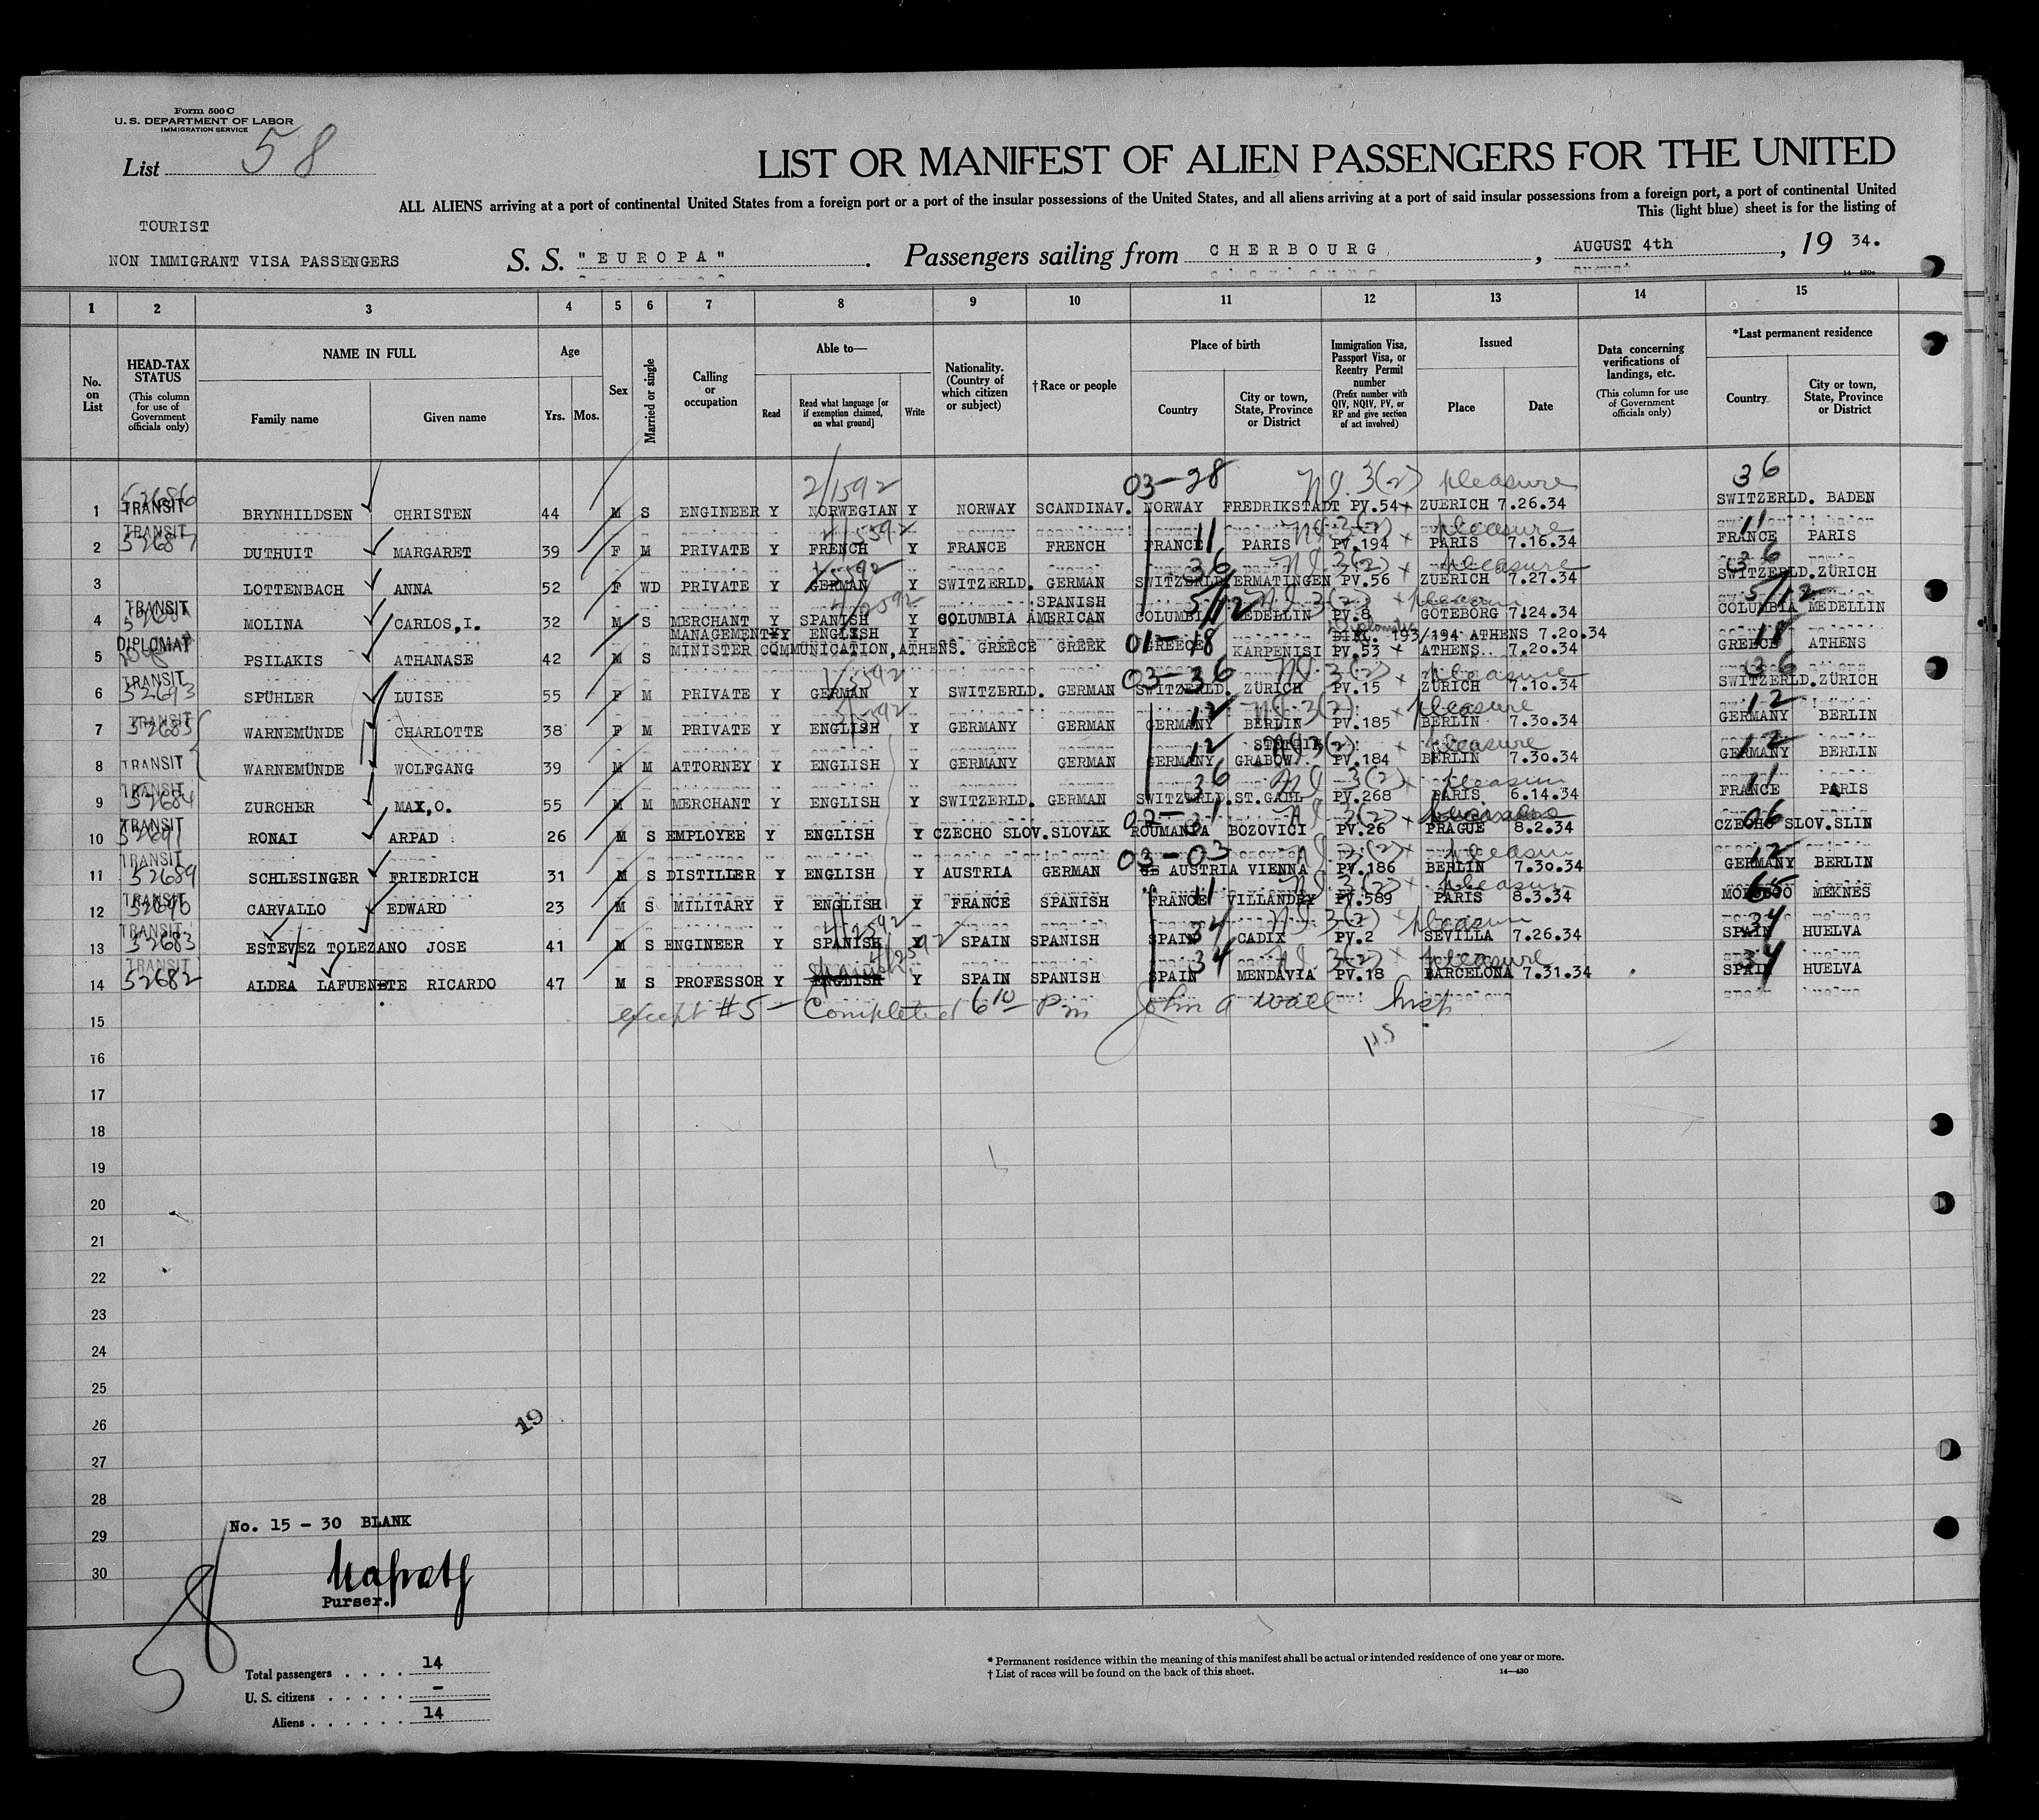 Form 500 C
U. S. DEPARTMENT OF LABOR
IMMIGRATION SERVICE
List 58
LIST OR MANIFEST OF ALIEN PASSENGERS FOR THE UNITED
ALL ALIENS arriving at a port of continental United States from a foreign port or a port of the insular possessions of the United States, and all aliens arriving at a port of said insular possessions from a foreign port, a port of continental United
This (light blue) sheet is for the listing of
TOURIST
NON IMMIGRANT VISA PASSENGERS
S. S. "EUROPA". Passengers sailing from CHERBOURG, AUGUST 4th, 19 34.
14—430a
1 2 3 4 5 6 7 8 9 10 11 12 13 14 15
No. on List
HEAD-TAX STATUS (This column for use of Government officials only)
NAME IN FULL Family name Given name
Age Yrs. Mos.
Sex
Married or single
Calling or occupation
Able to— Read Read what language [or if exemption claimed, on what ground] Write
Nationality. (Country of which citizen or subject)
†Race or people
Place of birth Country City or town, State, Province or District
Immigration Visa, Passport Visa, or Reentry Permit number (Prefix number with QIV, NQIV, PV, or RP and give section of act involved)
Issued Place Date
Data concerning verifications of landings, etc. (This column for use of Government officials only)
*Last permanent residence Country City or town, State, Province or District
52686 2/1592 03-28 3(2) pleasure 36
1 TRANSIT BRYNHILDSEN CHRISTEN 44 M S ENGINEER Y NORWEGIAN Y NORWAY SCANDINAV. NORWAY FREDRIKSTADT PV.54 ZUERICH 7.26.34 SWITZERLD. BADEN
2 TRANSIT 52687 DUTHUIT MARGARET 39 F M PRIVATE Y FRENCH Y FRANCE FRENCH FRANCE 11 PARIS PV.194 PARIS 7.16.34 pleasure FRANCE 11 PARIS
3 LOTTENBACH ANNA 52 F WD PRIVATE Y GERMAN Y SWITZERLD. GERMAN SWITZERLD. 36 ERMATINGEN PV.56 ZUERICH 7.27.34 pleasure SWITZERLD. 36 ZÜRICH
4 TRANSIT MOLINA CARLOS,I. 32 M S MERCHANT Y SPANISH Y COLUMBIA SPANISH AMERICAN COLUMBIA MEDELLIN PV.8 GOTEBORG 7.24.34 COLUMBIA MEDELLIN
5 DIPLOMAT PSILAKIS ATHANASE 42 M S MANAGEMENT Y ENGLISH Y MINISTER COMMUNICATION,ATHENS. GREECE GREEK 01-18 GREECE KARPENISI DIPL. 193/194 ATHENS 7.20.34 PV.53 ATHENS. 7.20.34 GREECE 18 ATHENS
6 TRANSIT 52693 SPÜHLER LUISE 55 F M PRIVATE Y GERMAN Y SWITZERLD. GERMAN 03-36 SWITZERLD. ZÜRICH PV.15 ZÜRICH 7.10.34 pleasure SWITZERLD. 36 ZÜRICH
7 TRANSIT 52685 WARNEMÜNDE CHARLOTTE 38 F M PRIVATE Y ENGLISH Y GERMANY GERMAN GERMANY 12 BERLIN PV.185 BERLIN 7.30.34 pleasure GERMANY 12 BERLIN
8 TRANSIT WARNEMÜNDE WOLFGANG 39 M M ATTORNEY Y ENGLISH Y GERMANY GERMAN GERMANY 12 GRABOW PV.184 BERLIN 7.30.34 pleasure GERMANY 12 BERLIN
9 TRANSIT 52684 ZURCHER MAX,O. 55 M M MERCHANT Y ENGLISH Y SWITZERLD. GERMAN SWITZERLD. 36 ST.GALL PV.268 PARIS 6.14.34 FRANCE 11 PARIS
10 TRANSIT 52691 RONAI ARPAD 26 M S EMPLOYEE Y ENGLISH Y CZECHO SLOV. SLOVAK 02-31 ROUMANIA BOZOVICI PV.26 PRAGUE 8.2.34 CZECHO SLOV. 06 SLIN
11 TRANSIT 52689 SCHLESINGER FRIEDRICH 31 M S DISTILLER Y ENGLISH Y AUSTRIA GERMAN 03-03 AUSTRIA VIENNA PV.186 BERLIN 7.30.34 GERMANY 12 BERLIN
12 TRANSIT 52690 CARVALLO EDWARD 23 M S MILITARY Y ENGLISH Y FRANCE SPANISH FRANCE 11 VILLANDRY PV.589 PARIS 8.3.34 MOROCCO 65 MEKNES
13 TRANSIT 52683 ESTEVEZ TOLEZANO JOSE 41 M S ENGINEER Y SPANISH Y SPAIN SPANISH SPAIN 34 CADIX PV.2 SEVILLA 7.26.34 SPAIN 34 HUELVA
14 TRANSIT 52682 ALDEA LAFUENETE RICARDO 47 M S PROFESSOR Y ENGLISH Y SPAIN SPANISH SPAIN 34 MENDAVIA PV.18 BARCELONA 7.31.34 pleasure SPAIN 34 HUELVA
15 except #5 - Completed 6 10 Pm John A Wall Insp
16
17
18
19
20
21
22
23
24
25
26 19
27
28
29 No. 15 - 30 BLANK
30
Purser.
58
Total passengers 14
U. S. citizens -
Aliens 14
* Permanent residence within the meaning of this manifest shall be actual or intended residence of one year or more.
† List of races will be found on the back of this sheet.
14—430